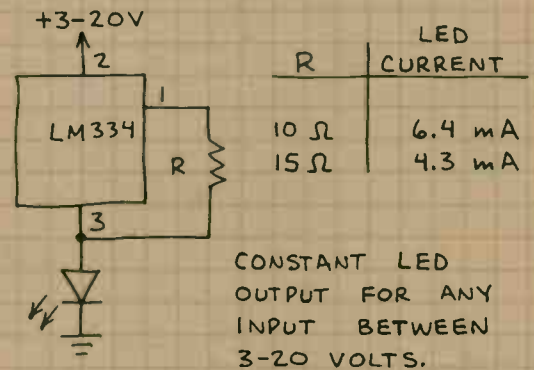 +3-20V
2
1
LM334
R
3
R LED CURRENT
10 Ω 6.4 mA
15 Ω 4.3 mA
CONSTANT LED
OUTPUT FOR ANY
INPUT BETWEEN
3-20 VOLTS.